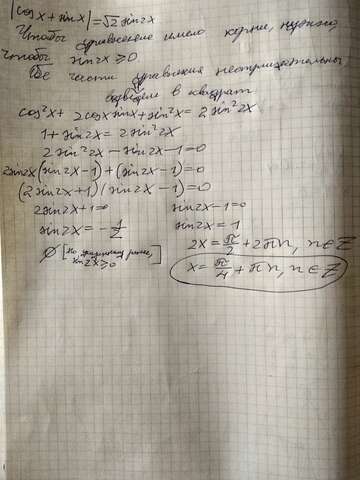 |cos x + sin x| = √2 sin 2x
Чтобы уравнение имело корни, нужно,
чтобы sin 2x ≥ 0
Обе части уравнения неотрицательны
возведём в квадрат
cos²x + 2cos x sin x + sin²x = 2 sin²2x
1 + sin 2x = 2 sin²2x
2 sin²2x - sin 2x - 1 = 0
2 sin 2x (sin 2x - 1) + (sin 2x - 1) = 0
(2 sin 2x + 1)(sin 2x - 1) = 0
2 sin 2x + 1 = 0 sin 2x - 1 = 0
sin 2x = - 1/2 sin 2x = 1
∅ [по условию ранее, sin 2x ≥ 0] 2x = π/2 + 2πn, n ∈ Z
x = π/4 + πn, n ∈ Z